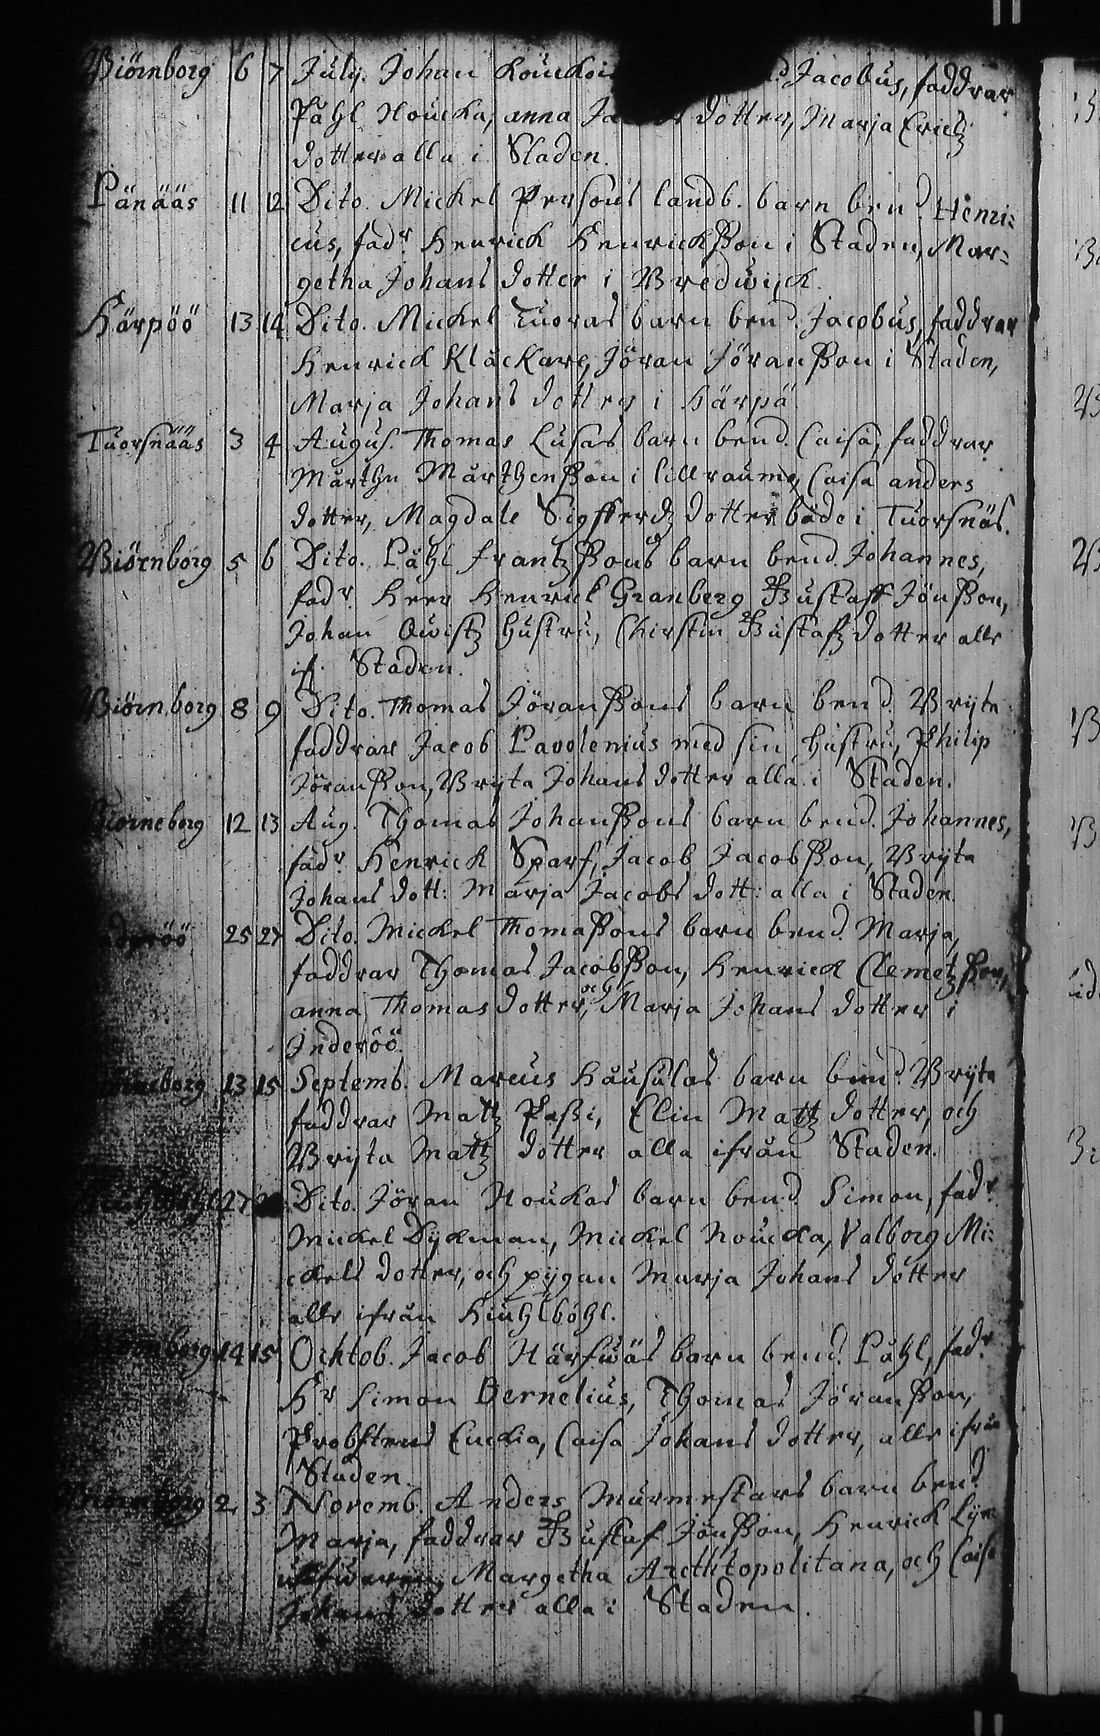 Biörnborg 6 7 July. Johan Jacobus, faddrar
Påhl Noucka, anna dotter, Marja Erichz
dotter alla i Staden.
Pänääs 11 12 Dito. Mickel Persons landb. barn bend. Henri=
cus, fadr Henrick Henrickßon i Staden, Mar=
getha Johans dotter i Bredwijck.
Härpöö 13 14 Dito. Mickel Tuoras barn bend. Jacobus, faddrar
Henrick Klåckare, Jöran Jöranßon i Staden,
Marja Johans dotter i Härpä
Tuorsnääs 3 4 Augus. Thomas Lusas barn bend. Caisa, faddrar
Mårthn Mårthenßon i lillraumo, Caisa anders
dotter, Magdale Sigfferdz dotter både i Tuorsnäs.
Biörnborg 5 6 Dito. Påhl frantzßons barn bend. Johannes,
fadr. Herr Henrick Granberg Gustaff Jönßon,
Johan Qwistz hustru, Chirstin Gustafz dotter alle
if. Staden.
Biörnborg 8 9 Dito. Thomas Jöranßons barn bend. Bryta
faddrar Jacob Pavolenius med sin hustru, Philip
Jöranßon, Bryta Johans dotter alla i Staden.
Biörneborg 12 13 Aug. Thomas Johanßons barn bend. Johannes,
fadr. Henrick Sparf, Jacob Jacobßon, Bryta
Johans dott: Marja Jacobs dott: alla i Staden.
Inderöö 25 27 Dito. Mickel Thomaßons barn bend. Marja,
faddrar Thomas Jacobßon, Henrick Clemetzßon,
anna Thomas dotter, och Marja Johans dotter i
Inderöö.
Biörneborg 13 15 Septemb. Marcus Håusulas barn bend. Bryta
faddrar Mattz Paßi, Elin Mattz dotter, och
Bryta Mattz dotter alla ifrån Staden.
27 Dito. Jöran Noukas barn bend. Simon, fadr.
Mickel Dykman, Mickel Noucka, Valborg Mi=
ckels dotter, och pygan Marja Johans dotter
alle ifrån Kiuhlböhl.
Biörnborg 14 15 Ochtob. Jacob Närfwäs barn bend. Påhl, fadr.
Hr Simon Bernelius, Thomas Jöranßon,
Probstens Enckia, Caisa Johans dotter, alle ifrån
Staden.
Biörneborg 2 3 Novemb. Anders Murmestars barn bend.
Marja, faddrar Gustaf Jönßon, Henrick
Margetha Arcthtopolitana, och Caisa
Johans dotter alla i Staden.